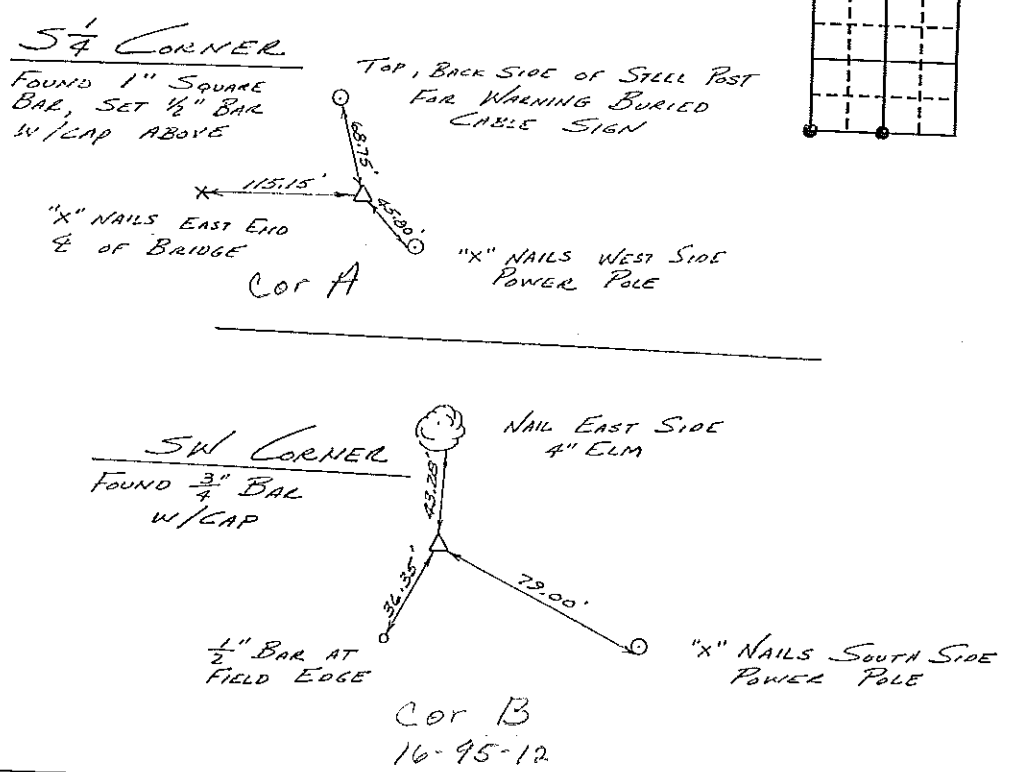 S 1/4 CORNER
FOUND 1" SQUARE
BAR, SET 1/2" BAR
W/CAP ABOVE
TOP, BACK SIDE OF STEEL POST
FOR WARNING BURIED
CABLE SIGN
68.75'
115.15'
45.80'
"X" NAILS EAST END
℄ OF BRIDGE
"X" NAILS WEST SIDE
POWER POLE
Cor A
SW CORNER
FOUND 3/4" BAR
W/CAP
NAIL EAST SIDE
4" ELM
43.28'
36.35'
79.00'
1/2" BAR AT
FIELD EDGE
"X" NAILS SOUTH SIDE
POWER POLE
Cor B
16-95-12